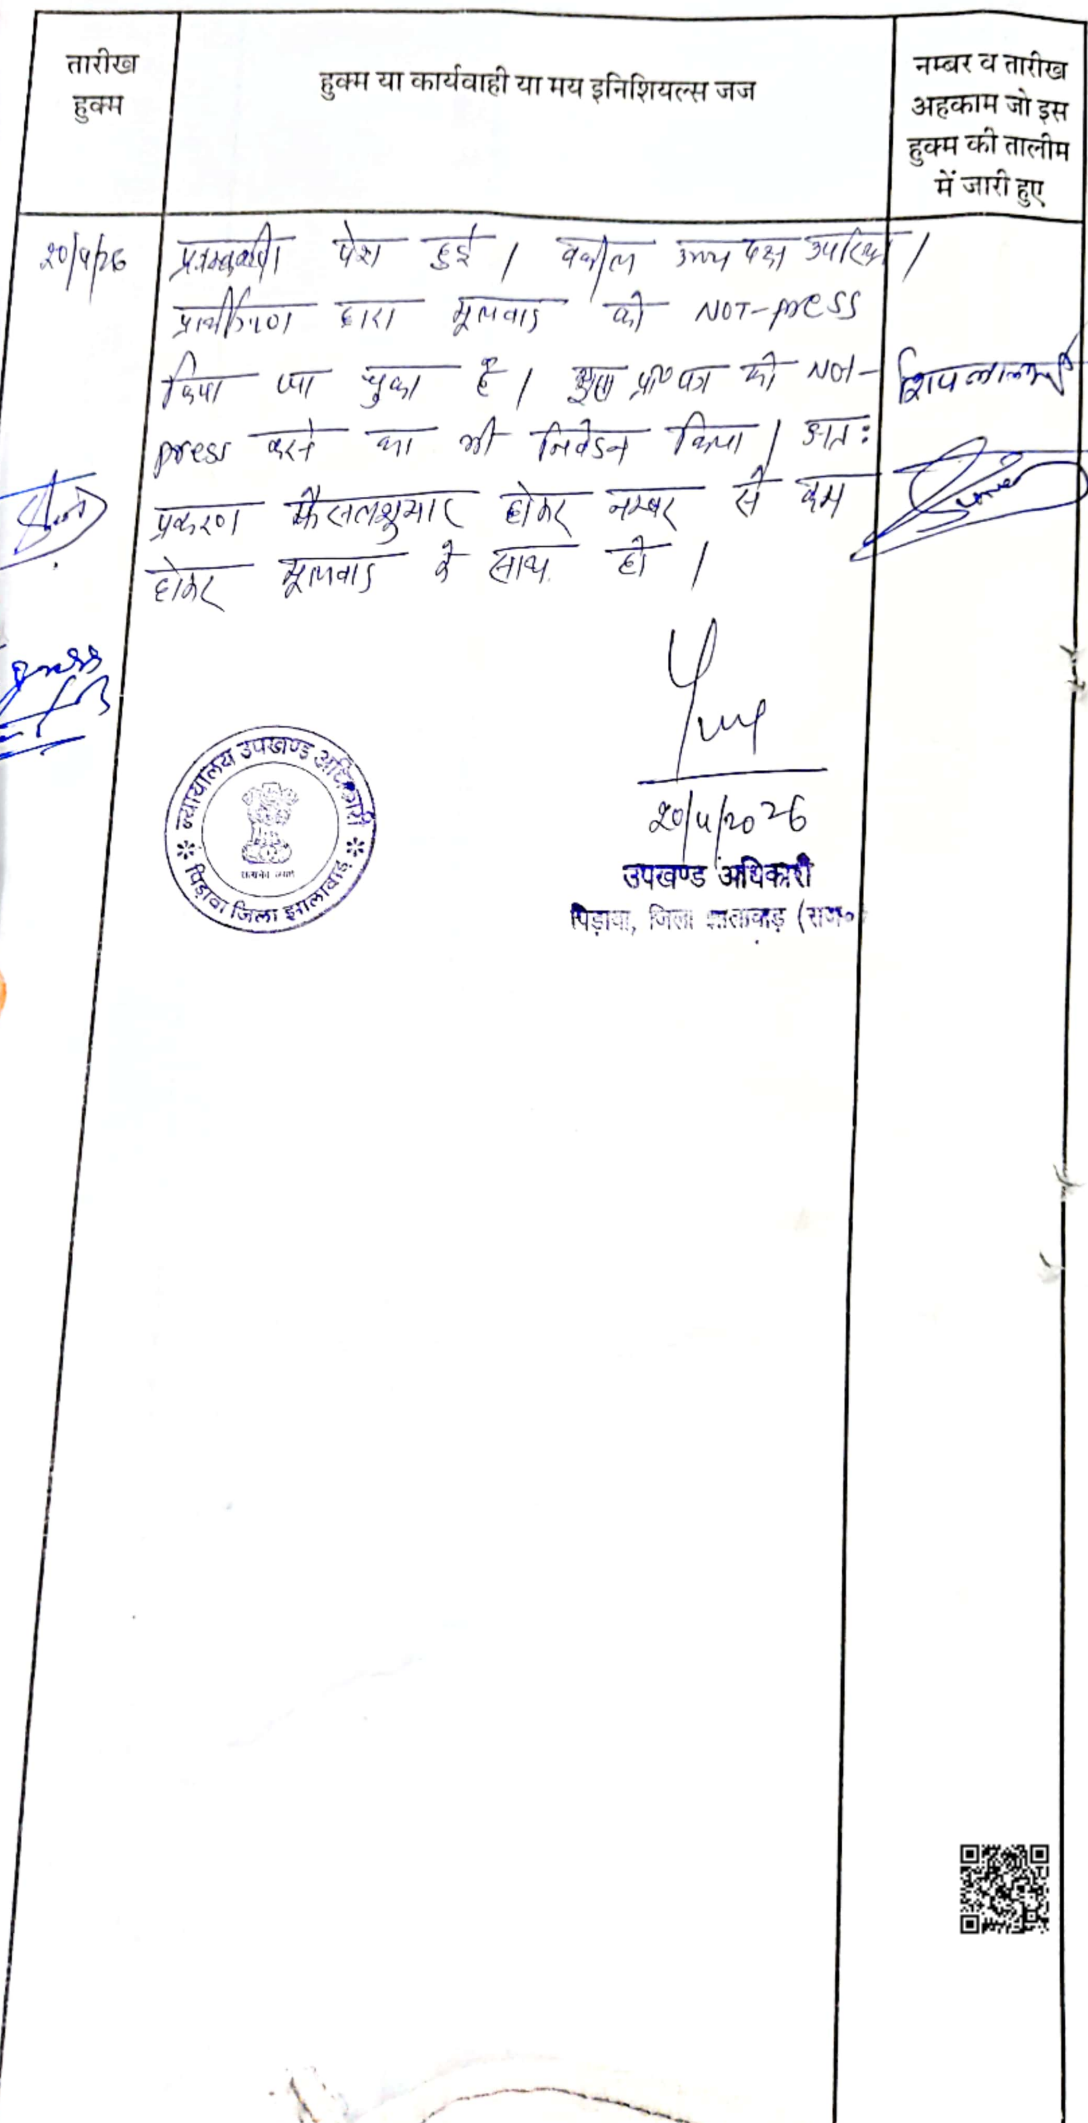 तारीख
हुक्म
हुक्म या कार्यवाही या मय इनिशियल्स जज
नम्बर व तारीख
अहकाम जो इस
हुक्म की तालीम
में जारी हुए
20/4/26
पेश हुई । वकील उभय पक्ष उपस्थित ।
प्रार्थीगण द्वारा मूलवाद को NOT-press
किया जा चुका है । इस प्रा० पत्र को NOT-
press करने का भी निवेदन किया । अतः
प्रकरण फैसलशुमार होकर नम्बर से कम
होकर मूलवाद के साथ हो ।
20/4/2026
उपखण्ड अधिकारी
पिड़ावा, जिला झालावाड़ (राज०)
न्यायालय उपखण्ड अधिकारी
पिड़ावा जिला झालावाड़
सत्यमेव जयते